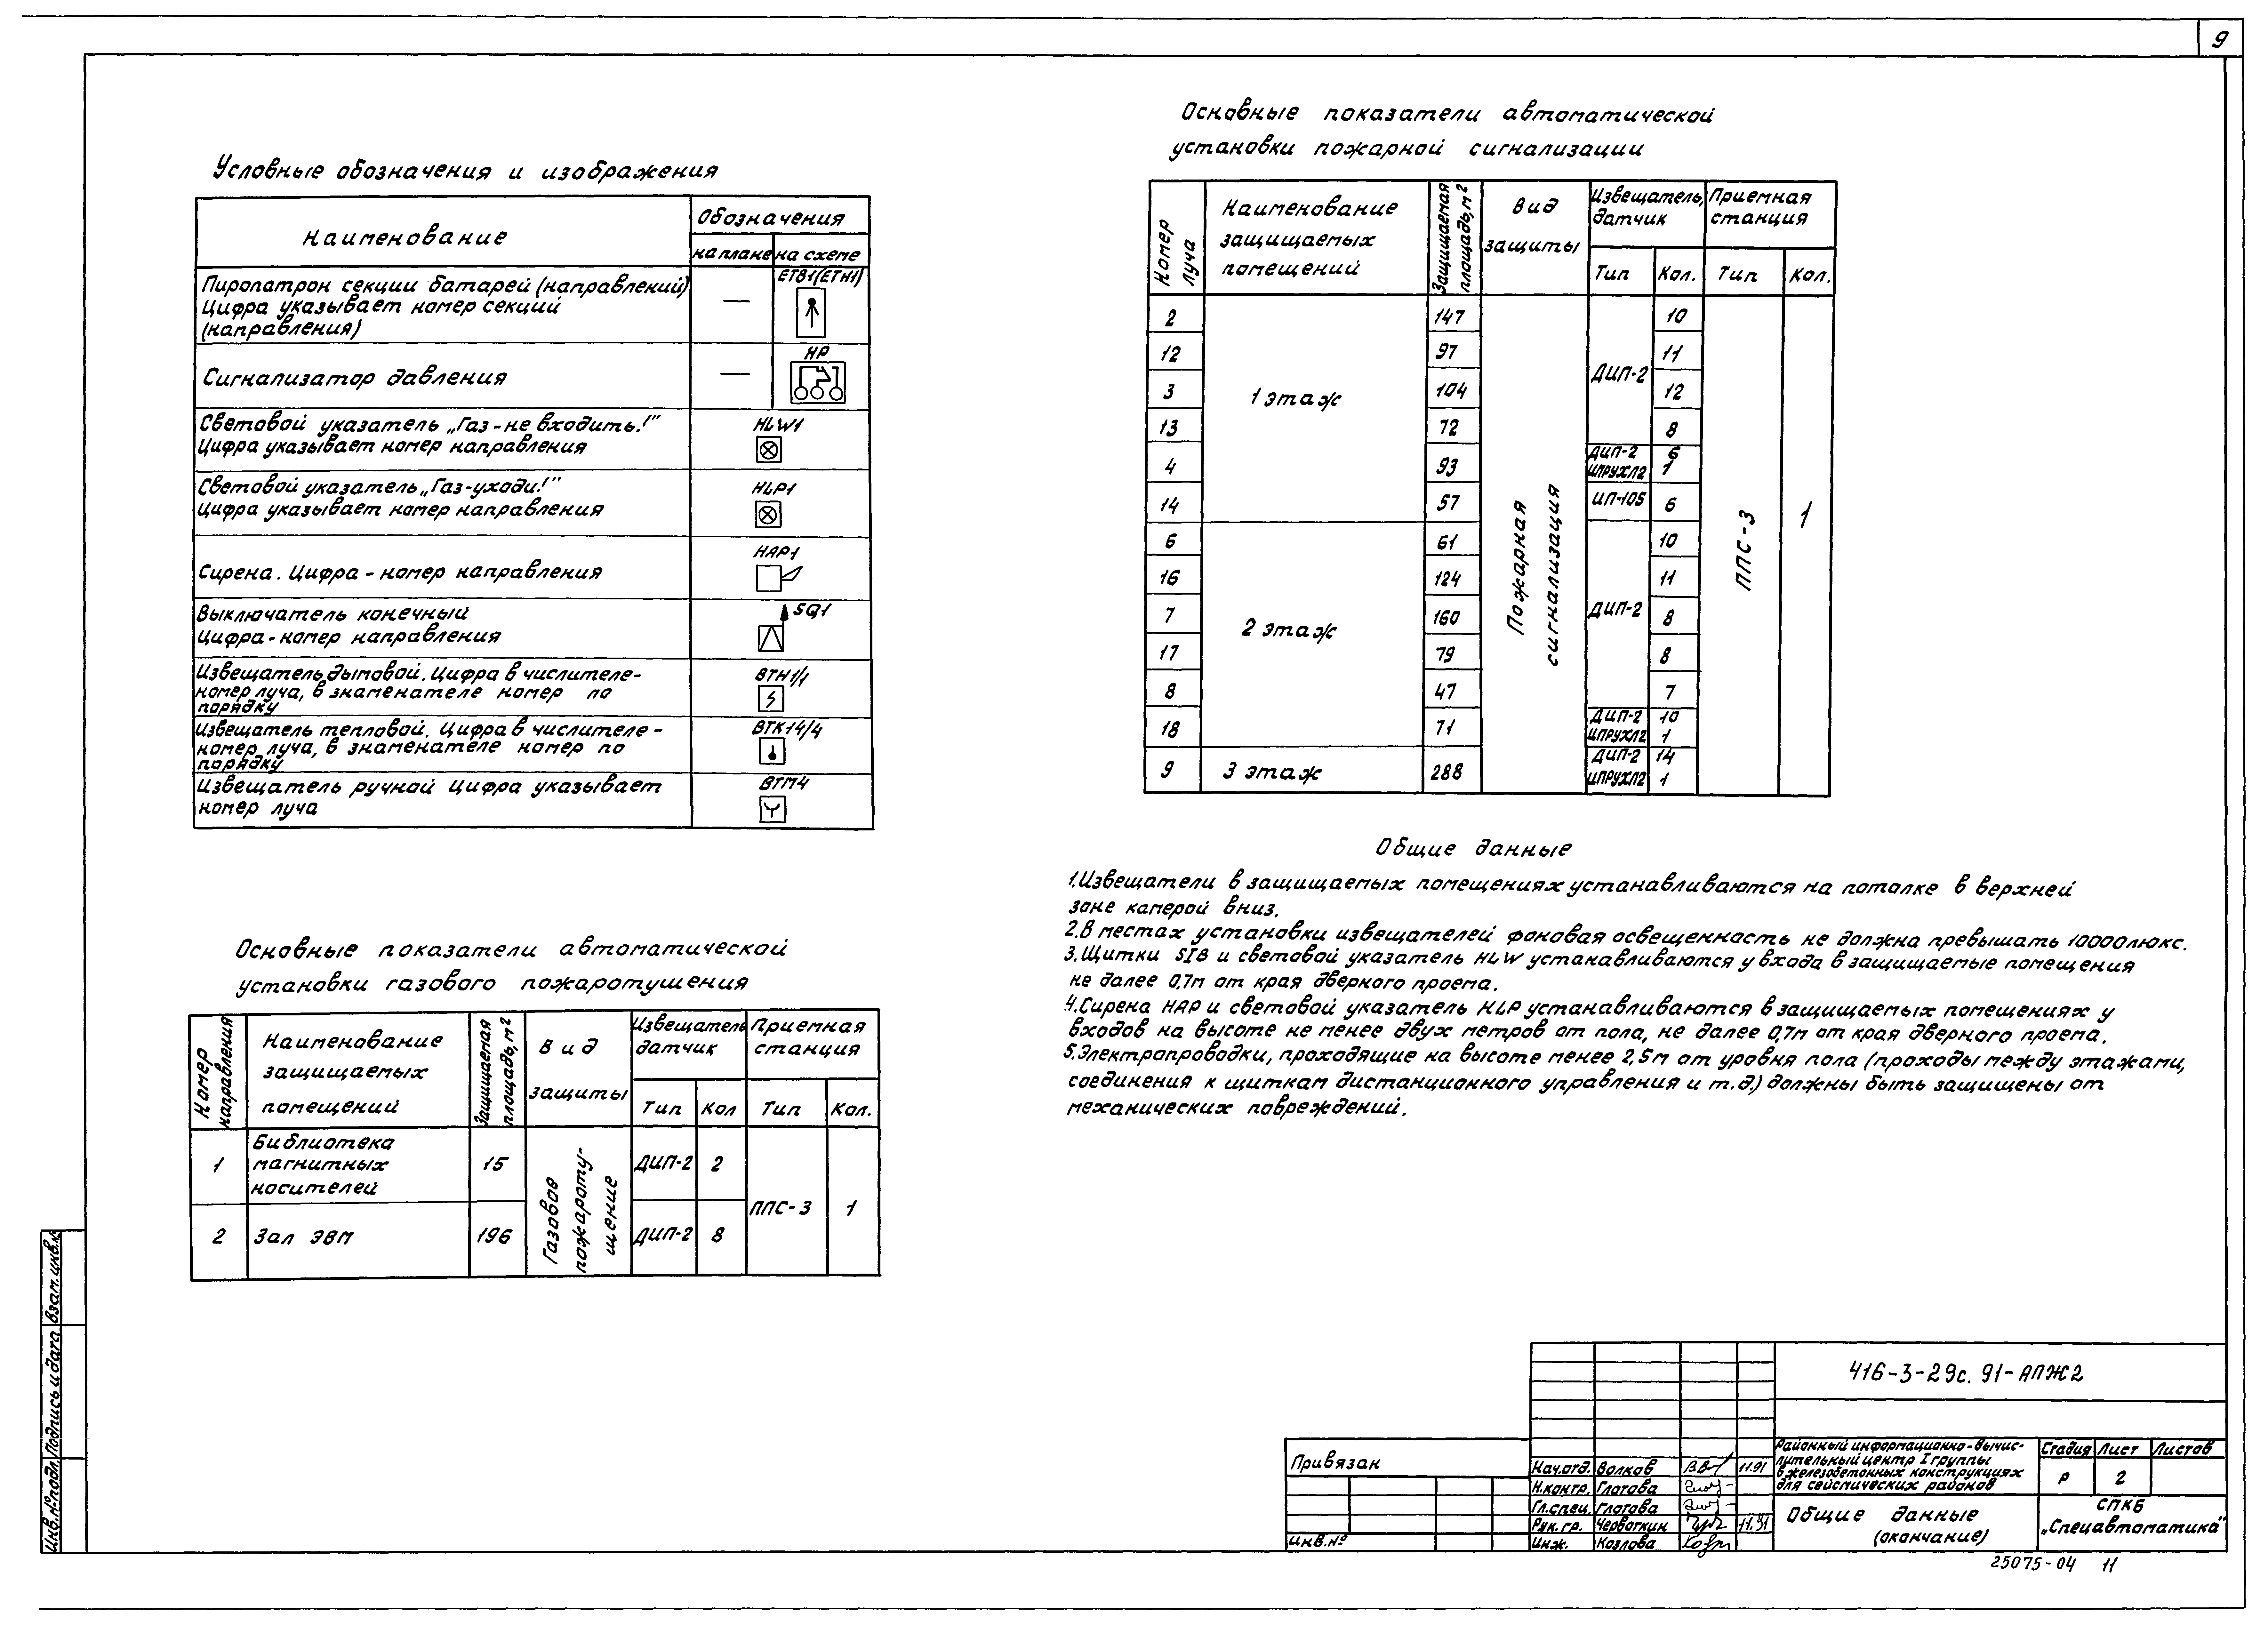 9
Условные обозначения и изображения
Наименование
Обозначения
на плане
на схеме
Пиропатрон секции батарей (направлений)
Цифра указывает номер секций
(направления)
—
ETB1(ETH1)
Сигнализатор давления
—
HP
Световой указатель „Газ-не входить!”
Цифра указывает номер направления
HLW1
Световой указатель „Газ-уходи!”
Цифра указывает номер направления
HLP1
Сирена. Цифра - номер направления
HAP1
Выключатель конечный
Цифра-номер направления
SQ1
Извещатель дымовой. Цифра в числителе-
номер луча, в знаменателе номер по
порядку
BTH1/1
Извещатель тепловой. Цифра в числителе-
номер луча, в знаменателе номер по
порядку
BTK14/4
Извещатель ручной Цифра указывает
номер луча
BTM4
Основные показатели автоматической
установки газового пожаротушения
Номер направления
Наименование защищаемых помещений
Защищаемая площадь, м²
Вид защиты
Извещатель датчик
Приемная станция
Тип
Кол
Тип
Кол.
1
Библиотека
магнитных
носителей
15
Газовое пожароту-
щение
ДИП-2
2
ППС-3
1
2
Зал ЭВМ
196
ДИП-2
8
Основные показатели автоматической
установки пожарной сигнализации
Номер луча
Наименование защищаемых помещений
Защищаемая площадь, м²
Вид защиты
Извещатель, датчик
Приемная станция
Тип
Кол.
Тип
Кол.
2 147 10
12 97 11
ДИП-2
3 1 этаж 104 12
13 72 8
4 93 ДИП-2 6
ИПРУХЛ2 1
14 57 ИП-105 6
Пожарная сигнализация
ППС-3
1
6 61 10
16 124 11
7 2 этаж 160 ДИП-2 8
17 79 8
8 47 7
18 71 ДИП-2 10
ИПРУХЛ2 1
9 3 этаж 288 ДИП-2 14
ИПРУХЛ2 1
Общие данные
1.Извещатели в защищаемых помещениях устанавливаются на потолке в верхней
зоне камерой вниз.
2.В местах установки извещателей фоновая освещенность не должна превышать 10000люкс.
3.Щитки SIB и световой указатель HLW устанавливаются у входа в защищаемые помещения
не далее 0,7м от края дверного проема.
4.Сирена HAP и световой указатель HLP устанавливаются в защищаемых помещениях у
входов на высоте не менее двух метров от пола, не далее 0,7м от края дверного проема.
5.Электропроводки, проходящие на высоте менее 2,5м от уровня пола (проходы между этажами,
соединения к щиткам дистанционного управления и т.д.) должны быть защищены от
механических повреждений.
Инв.№подл.
Подпись и дата
Взам.инв.№
Привязан
Инв.№
Нач.отд. Волков 11.91
Н.контр. Глотова
Гл.спец. Глотова
Рук.гр. Червоткин 11.91
Инж. Козлова
416-3-29с.91-АПЖ2
Районный информационно-вычис-
лительный центр I группы
в железобетонных конструкциях
для сейсмических районов
Стадия Лист Листов
Р 2
Общие данные
(окончание)
СПКБ
„Спецавтоматика”
25075-04 11